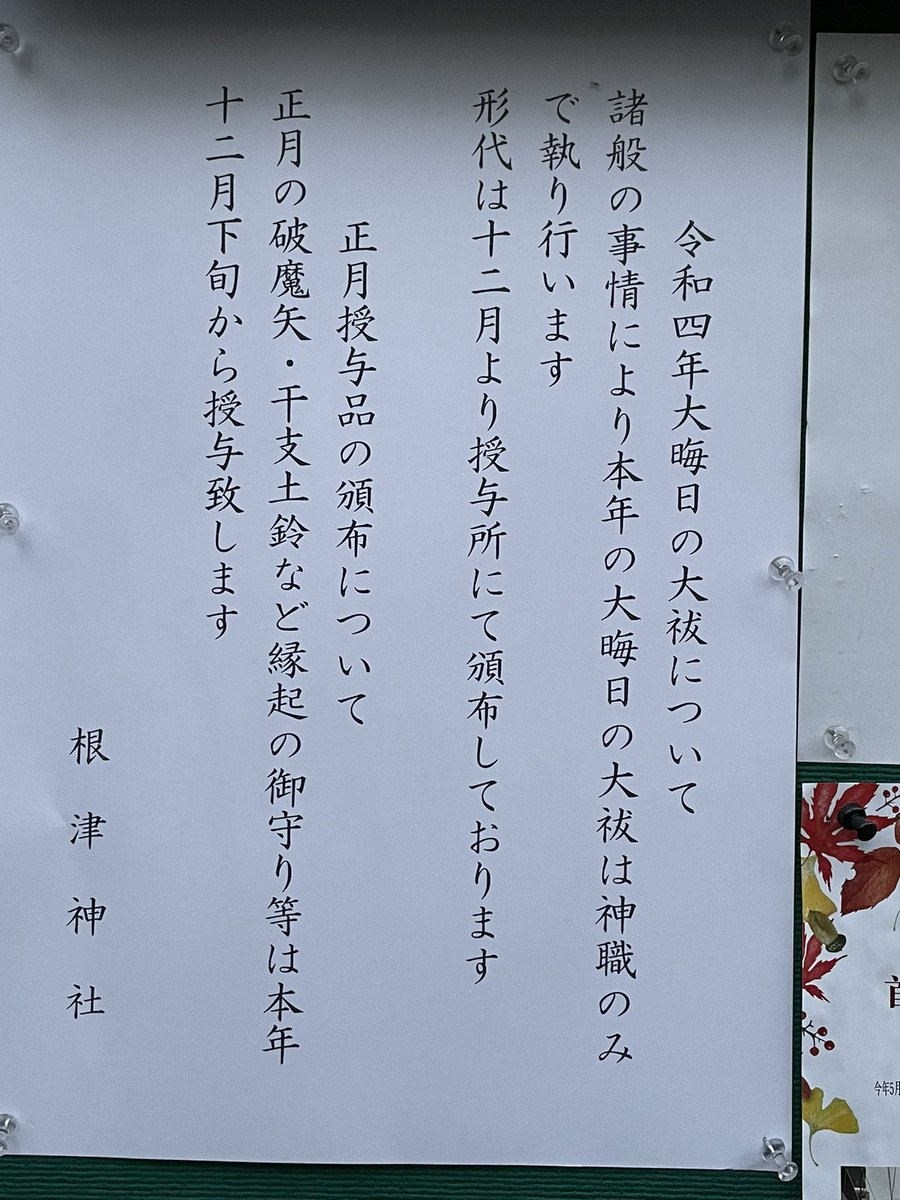 令和四年大晦日の大祓について
諸般の事情により本年の大晦日の大祓は神職のみ
で執り行います
形代は十二月より授与所にて頒布しております
正月授与品の頒布について
正月の破魔矢・干支土鈴など縁起の御守り等は本年
十二月下旬から授与致します
根津神社
今年5月